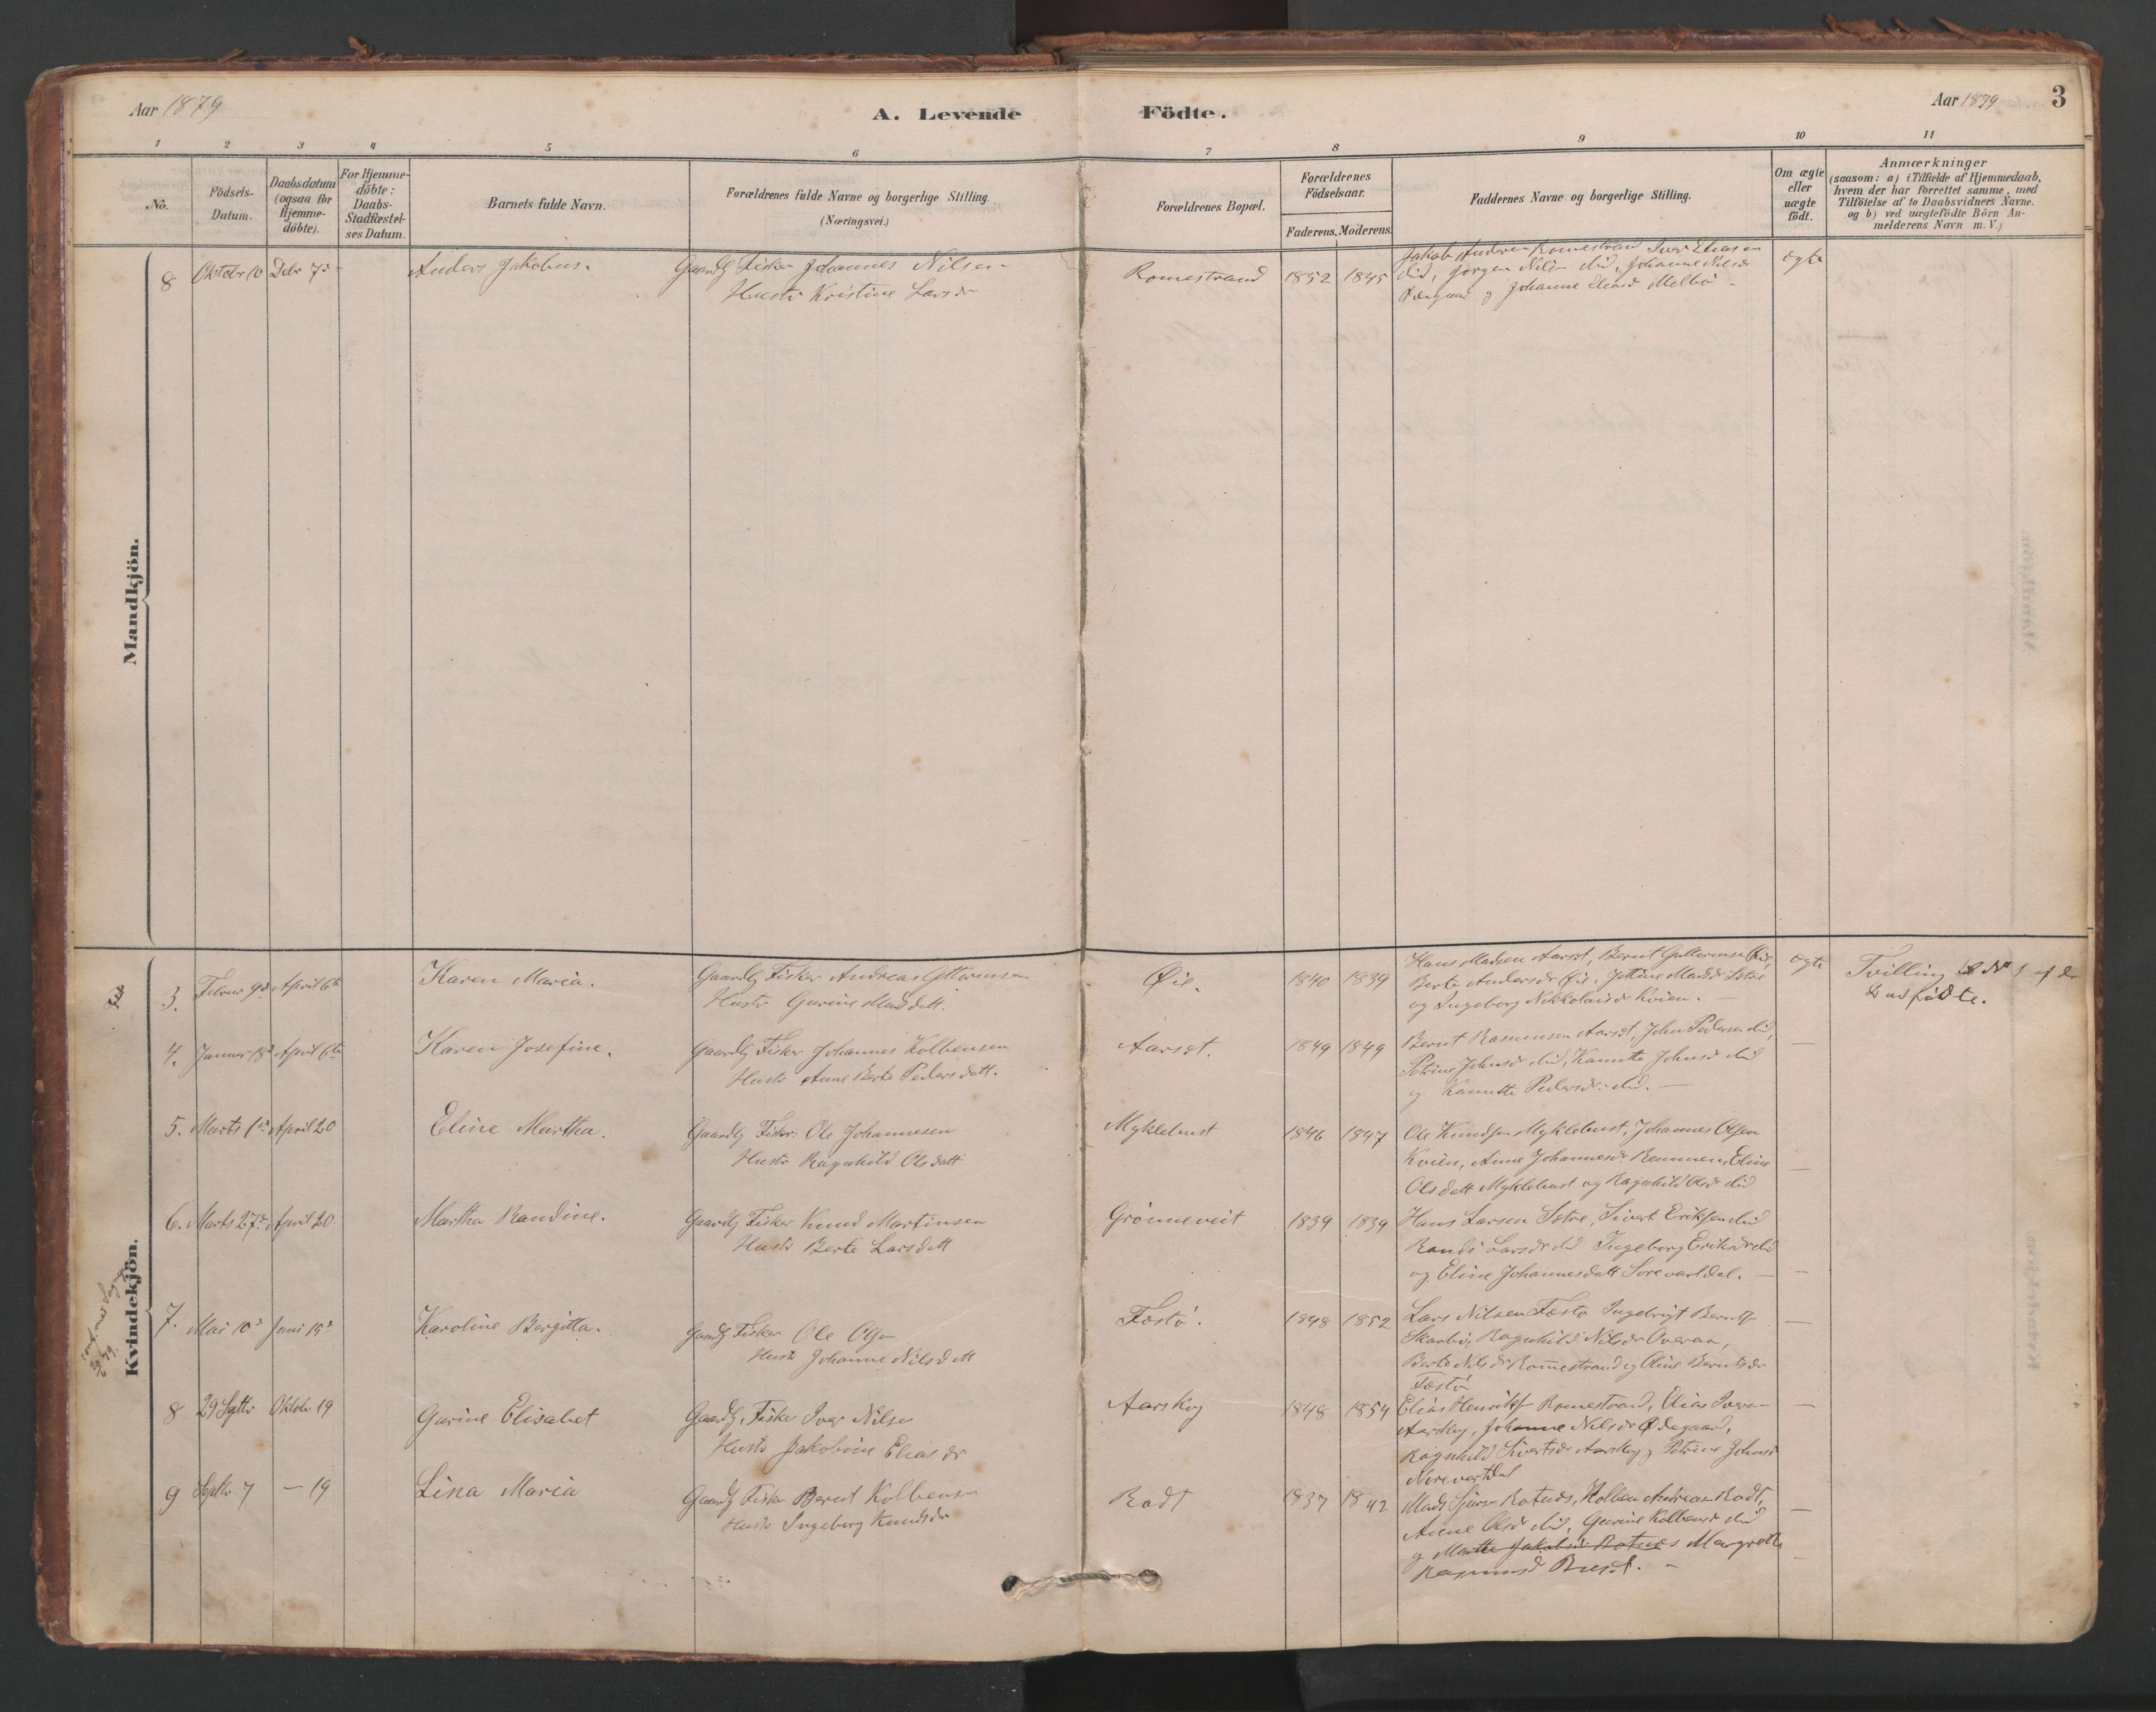 Aar 1879
A. Levende Födte.
Aar 1879
3
1 2 3 4 5 6 7 8 9 10 11
No.
Födsels-
Datum.
Daabsdatum
(ogsaa for
Hjemme-
döbte).
For Hjemme-
döbte:
Daabs-
Stadfæstel-
ses Datum.
Barnets fulde Navn.
Forældrenes fulde Navne og borgerlige Stilling.
(Næringsvei.)
Forældrenes Bopæl.
Forældrenes
Födselsaar.
Faderens. Moderens.
Faddernes Navne og borgerlige Stilling.
Om ægte
eller
uægte
födt.
Anmærkninger
(saasom: a) i Tilfælde af Hjemmedaab,
hvem der har forrettet samme, med
Tilföielse af to Daabsvidners Navne.
og b) ved uægtefödte Börn An-
melderens Navn m.V.)
Mandkjön.
8 Oktobr 10 Debr 7de Anders Jakobus. Gaardbr Fisker Johannes Nilsen
Hustr Kristine Larsdr
Romestrand 1852 1845
Jakob Andersen Romestrand Iver Eliasen
did, Jørgen Nils did, Johanne Nilsdr
Ødegaard og Johanne Eliasd Melbø
ægte
Kvindekjön.
3. Februar 9de April 6te Karen Maria. Gaardbr Fisker Andreas Guttormsen
Hustr Gurine Madsdatt.
Øie. 1840 1839
Hans Madsen Aarset, Bernt Guttormsen Øie,
Berte Andersdr Øie, Jettine Madsdr Sætre
og Ingeborg Nikkolaisdr Kvien.
ægte Tvilling No 1 af de
to udfødte.
4. Januar 18de April 6te Karen Josefine. Gaardbr Fisker Johannes Kolbensen
Hustr Anne Berte Pedersdatt.
Aarset. 1849 1849
Bernt Rasmusen Aarset, John Pedersen did,
Petrine Johnsdr did, Kanutte Johnsdr did
og Kanutte Pedersdr did.
5. Marts 1ste April 20 Eline Martha. Gaardbr Fisker Ole Johannesen
Hustr Ragnhild Olsdatt
Myklebust 1846 1847
Ole Knudsen Myklebust, Johannes Olsen
Kvien, Anne Johannesdr Remmen, Eline
Olsdatt Myklebust og Ragnhild Olsdr did
6. Marts 27de April 20 Martha Randine. Gaardbr Fisker Knud Martinsen
Hustr Berte Larsdatt
Grønneveit 1839 1839
Hans Larsen Sætre, Sivert Eriksen did
Randi Larsdr did Ingeborg Eriksdr did
og Eline Johannesdatt Sørevartdal.
7. Mai 10de Juni 15de Karoline Bergitta. Gaardbr Fisker Ole Olsen
Hustr Johanne Nilsdatt
Festø. 1848 1852
Lars Nilsen Festø Ingebrigt Berntsen
Skarbø, Ragnhild Nilsdr Overaa,
Berte Nilsdr Romestrand og Oline Berntsdr
Festø
8 29 Septbr Oktobr 19 Gurine Elisabet Gaardbr Fisker Iver Nilsen
Hustr Jakobine Eliasdr
Aarskog 1848 1854
Elias Henriks Romestrand, Elias Ivers
Aarskog, Johanne Nilsdr Ødegaard,
Ragnhild Sivertsdr Aarskog og Petrine Johnsd
Nørevartdal
9 Septbr 7 – 19 Lina Maria Gaardbr Fisker Bernt Kolbens
Hustr Ingeborg Knudsdr
Rodt 1837 1842
Mads Sjurs Rotnes, Kolben Andreas Rodt,
Anne Olsdr did, Gurine Kolbensd did
og Marthe Jakobsdr Rotnes Margrethe
Rasmusd Buset.